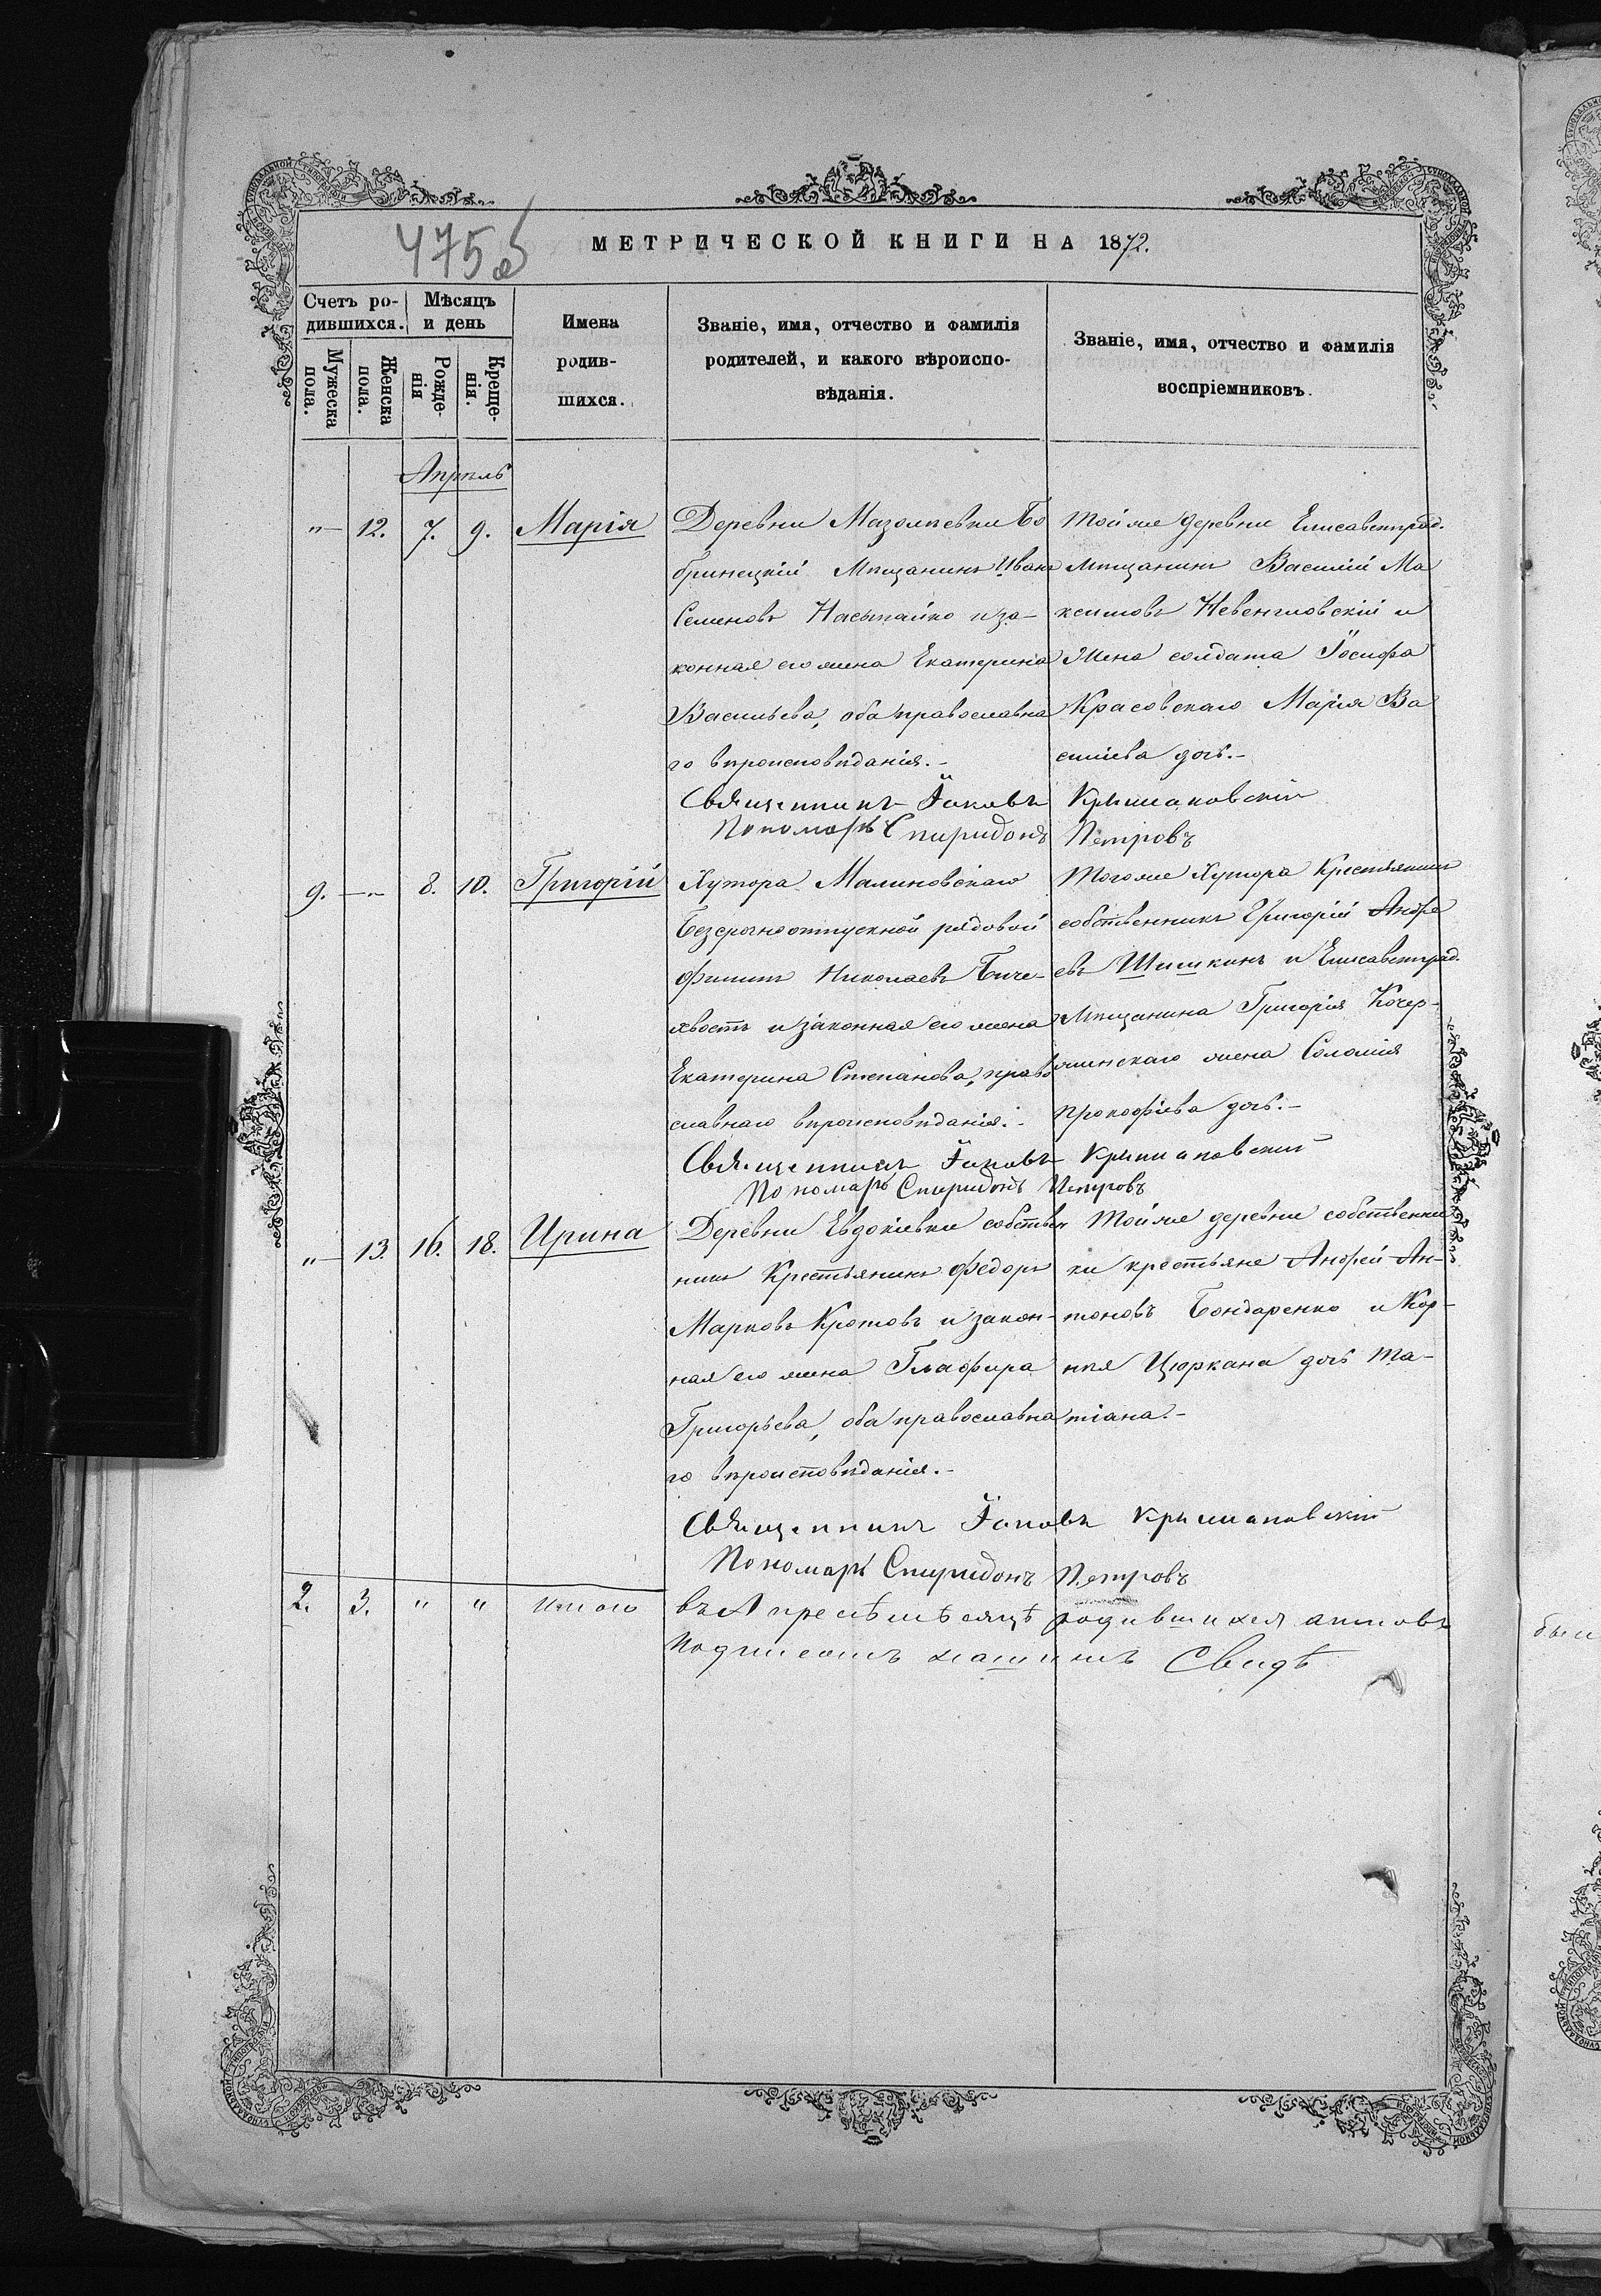 475 об
МЕТРИЧЕСКОЙ КНИГИ НА 1872.
Счетъ ро-
дившихся.
Мѣсяцъ
и день
Мужеска пола.
Женска пола.
Рожде-нія
Креще-нія.
Имена
родив-
шихся.
Званіе, имя, отчество и фамилія
родителей, и какого вѣроиспо-
вѣданія.
Званіе, имя, отчество и фамилія
воспріемниковъ.
Апрѣль
"— 12. 7. 9. Марія
Деревни Мазолиевки Бо
бринецкій Мѣщанинъ Иванъ
Семеновъ Насыпайко и за-
конная его жена Екатерина
Васильева, оба православна
го вѣроисповѣданія.-
Той же деревни Елисаветград.
мѣщанинъ Василій Ма
ксимовъ Невенгловскій и
Жена солдата Іосифа
Красовскаго Марія Ва
силіева дочь.-
Священникъ Іаковъ Крыжановскій
Пономарь Спиридонъ Петровъ
9. —"— 8. 10. Григорій
Хутора Малиновскаго
Безсрочноотпускной рядовой
Филипъ Николаевъ Биче-
хвостъ и законная его жена
Екатерина Степанова, право
славнаго вѣроисповѣданія.-
Тогоже Хутора Крестьянинъ
собственникъ Григорій Андре
евъ Шишкинъ и Елисаветград.
Мѣщанина Григорія Кочер-
жинскаго жена Соломія
Прокофіева дочь.-
Священникъ Іаковъ Крыжановскій
Пономарь Спиридонъ Петровъ
"— 13. 16. 18. Ирина
Деревни Евдокіевки собствен
никъ Крестьянинъ Федоръ
Марковъ Кротовъ и закон-
ная его жена Глафира
Григорьева, оба православна
го вѣроисповѣданія.-
Той же деревни собственни
ки крестьяне Андрей Ан-
тоновъ Бондаренко и Кор-
нія Цюркана дочь Та-
тіана.-
Священникъ Іаковъ Крыжановскій
Пономарь Спиридонъ Петровъ
2. 3. " " Итого
въ Апрелѣ мѣсяцѣ родившихся актовъ
Подписомъ нашимъ Свидѣ